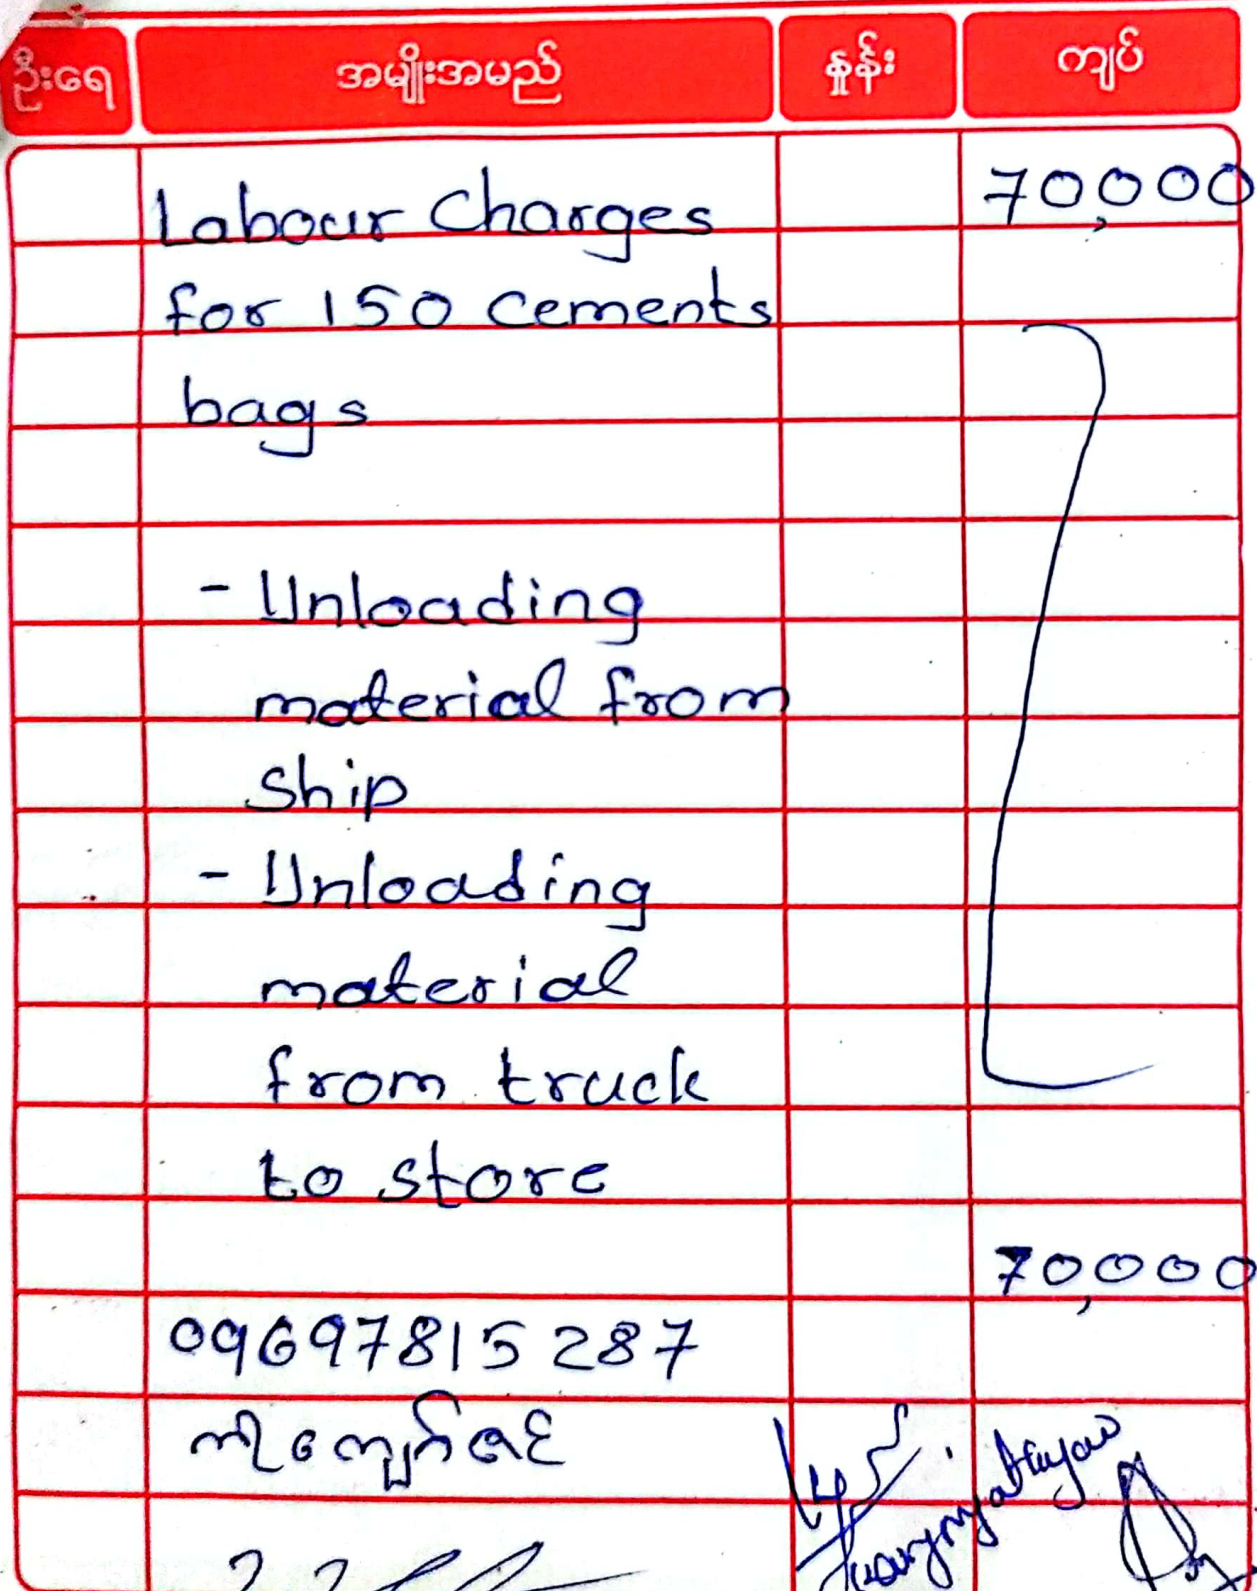 ဦးရေ အမျိုးအမည် နှုန်း ကျပ်
Labour Charges 70,000
for 150 cements
bags
- Unloading
material from
Ship
- Unloading
material
from truck
to store
70,000
09697815287
ကိုကျော်ဇင်